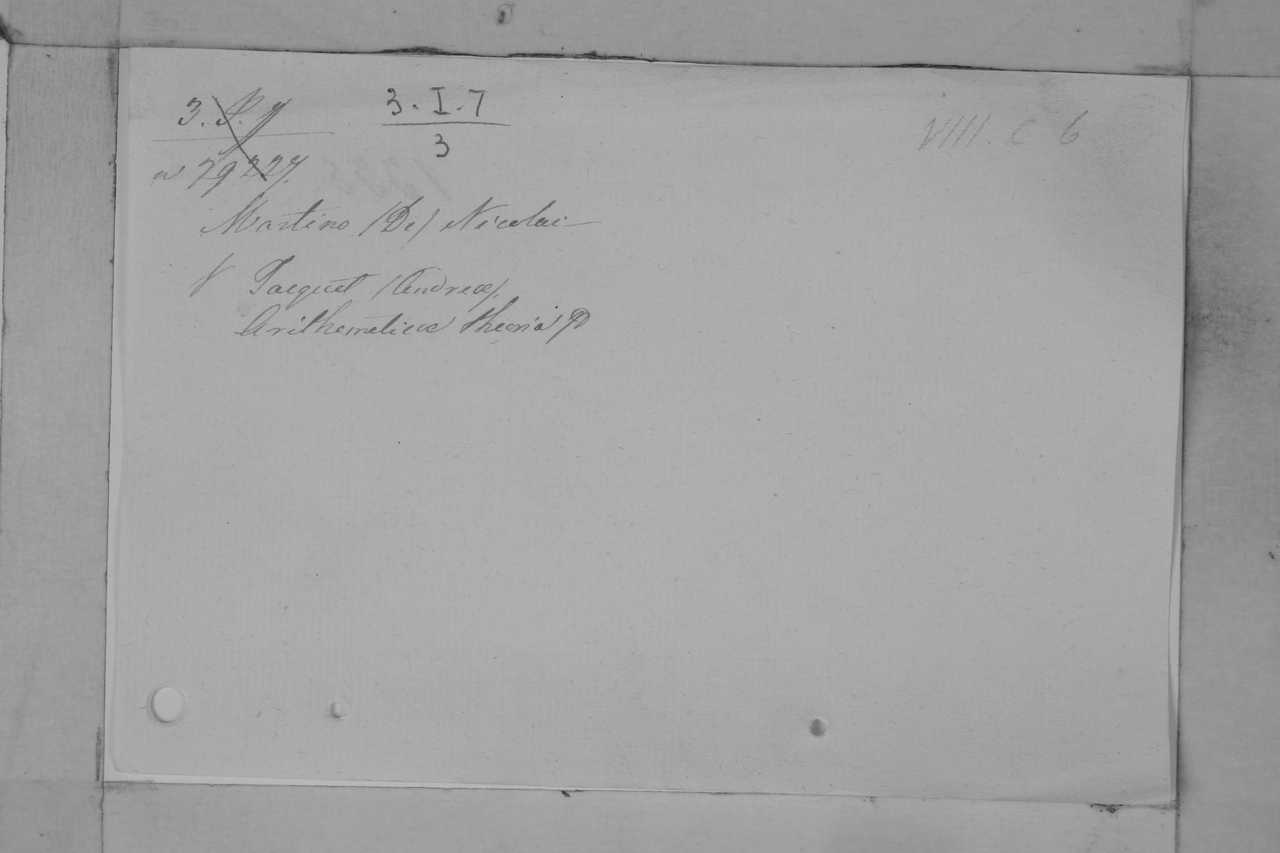 3. I. 7
3
VIII. C 6
Martino (De) Nicolai
V Tacquet (Andreæ),
Arithemeticae theoria